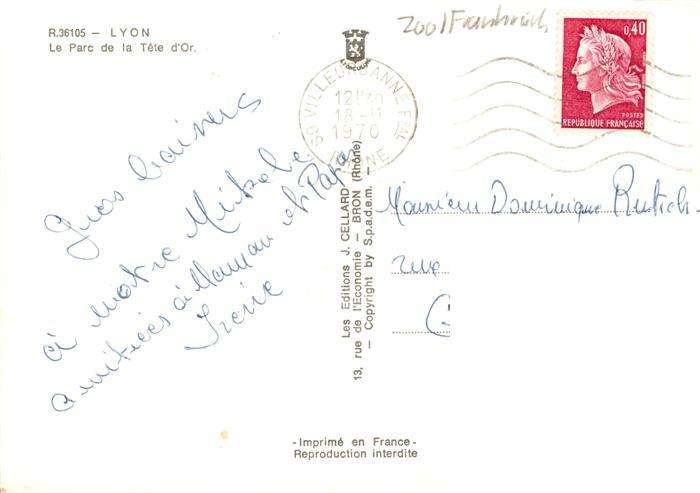 R.36105 - LYON
Le Parc de la Tête d'Or.
Gros baisers
à notre
amitiées à Maman et Papa
Irène
Les Editions J. CELLARD
13, rue de l'Economie - BRON (Rhône)
- Copyright by S.p.a.d.e.m. -
- Imprimé en France -
Reproduction interdite
69 VILLEURBANNE
18-11
1970
RHONE
2001 Frankreich
0,40
POSTES
REPUBLIQUE FRANÇAISE
Monsieur Dominique
rue